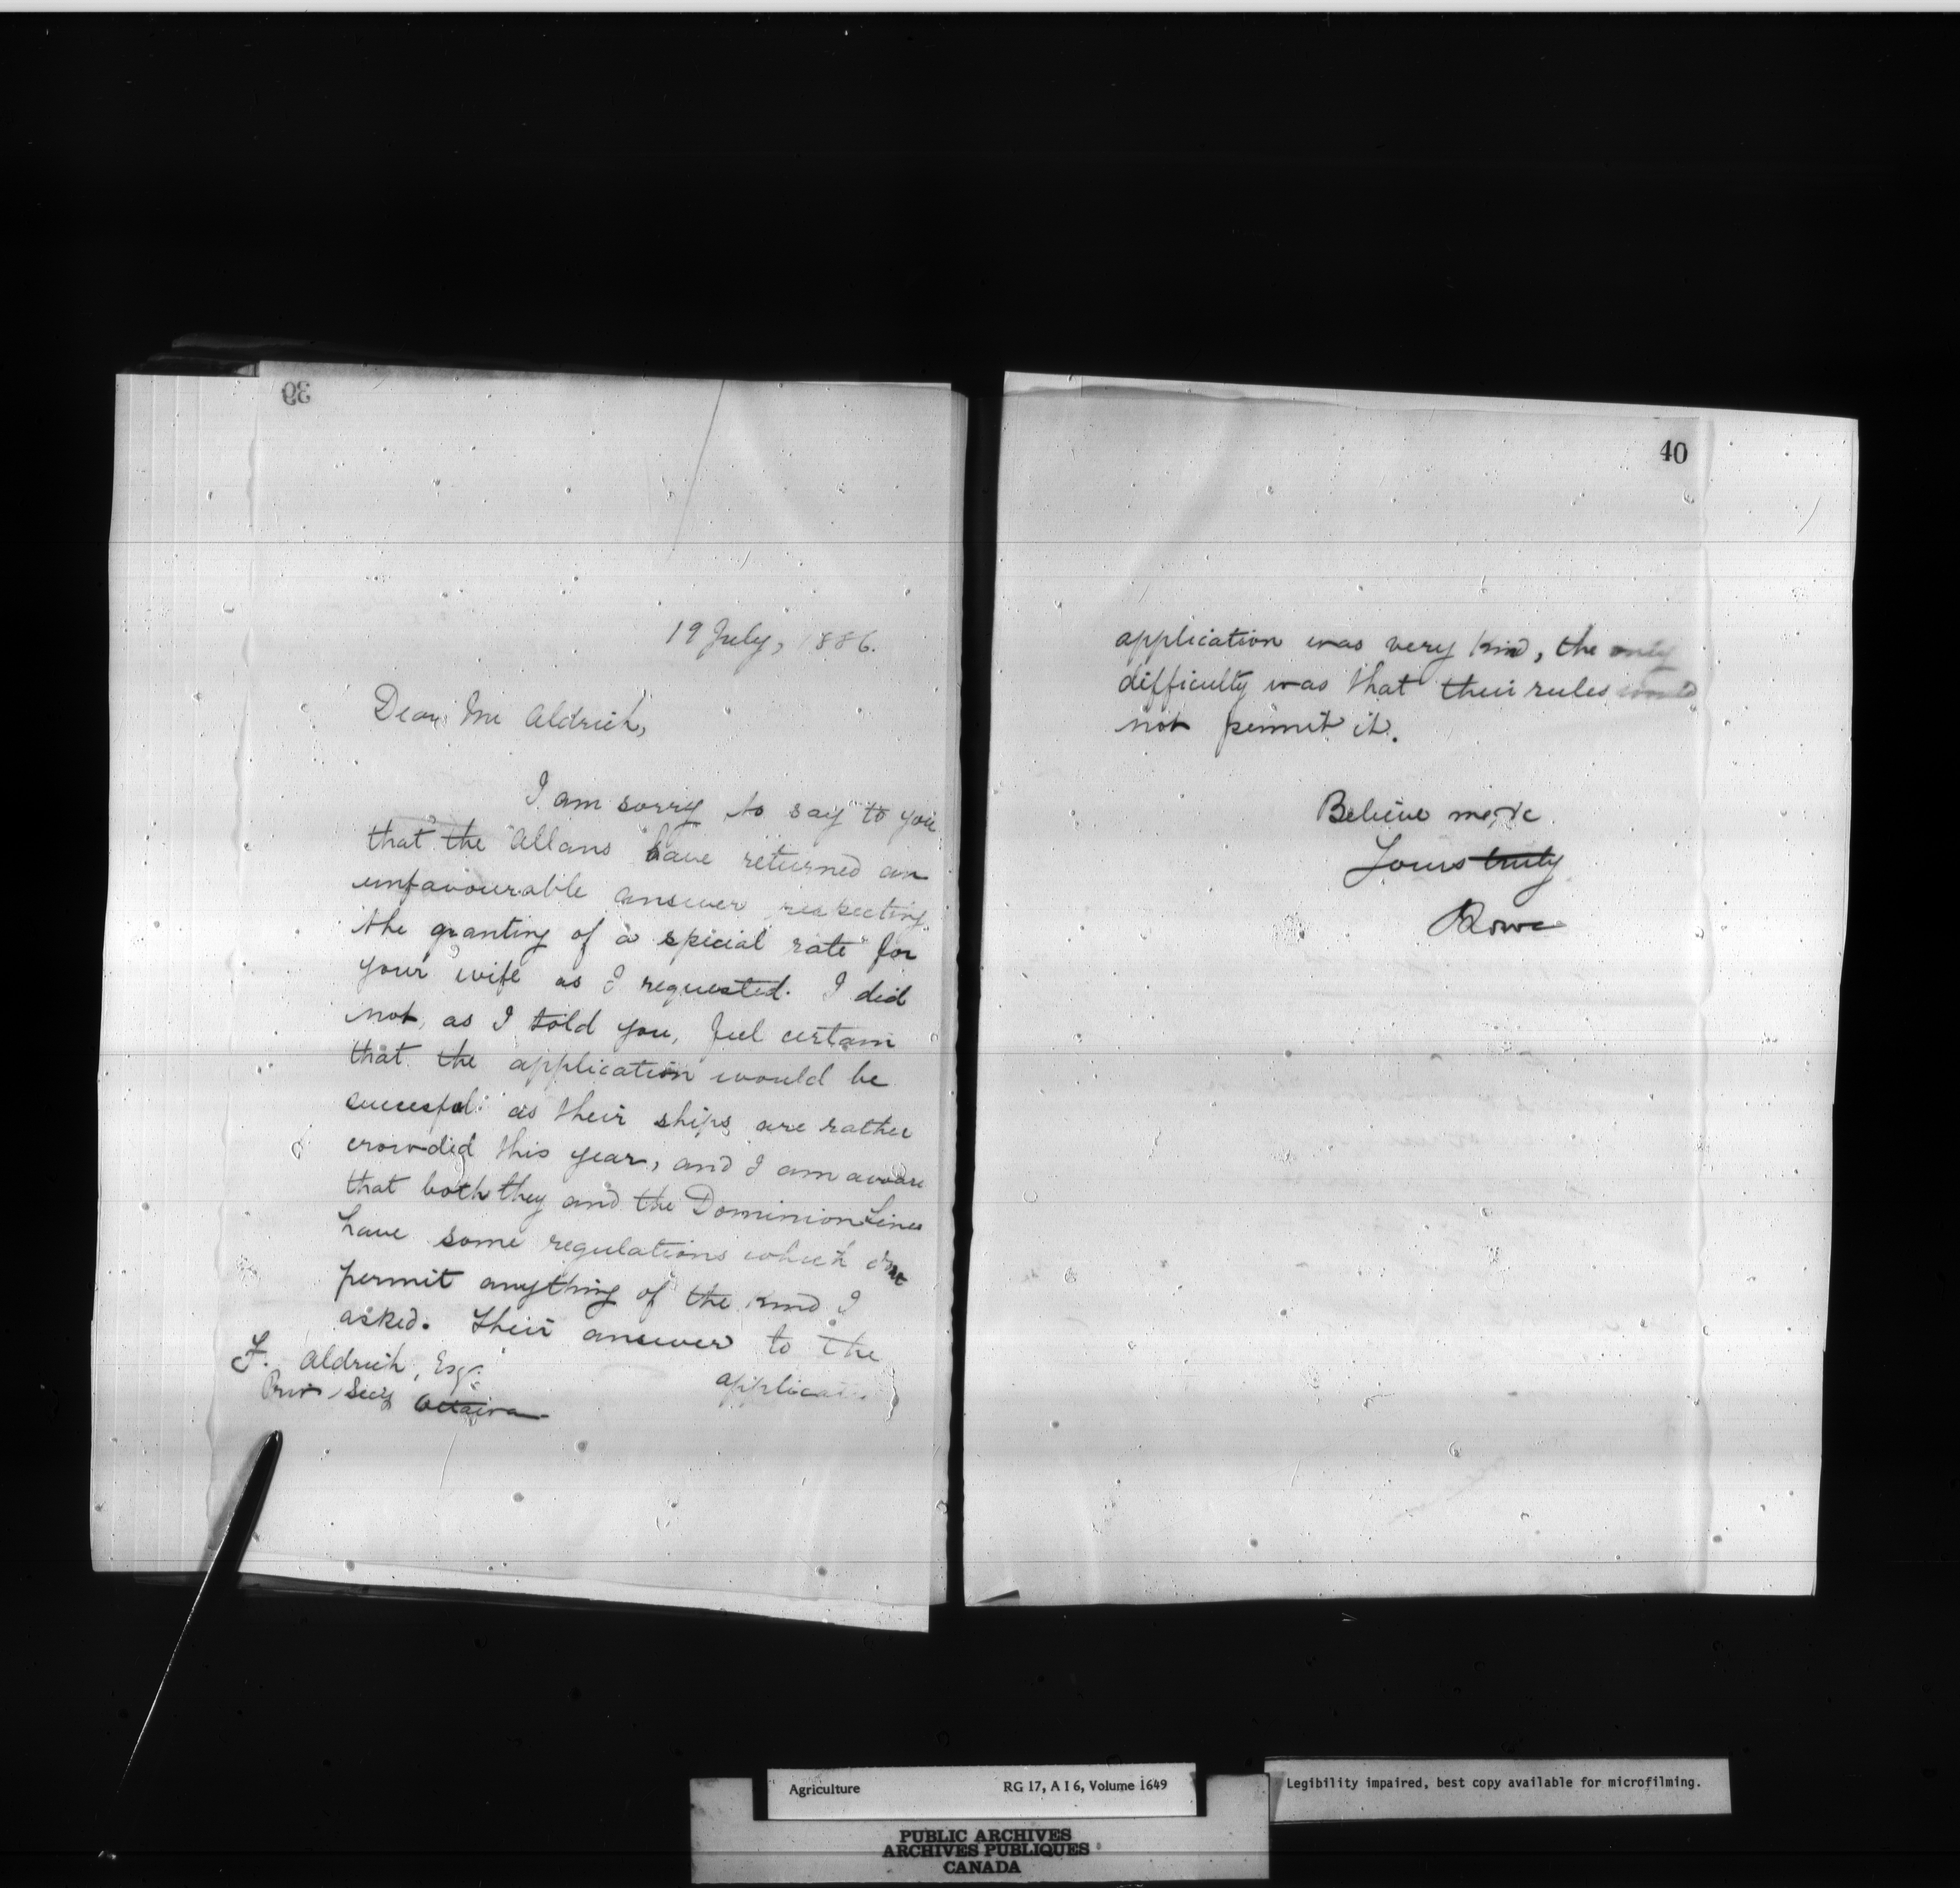 39
19 July, 1886.
Dear Mr Aldrich,
I am sorry to say to you
that the Allans have returned an
unfavourable answer respecting
the granting of a special rate for
your wife as I requested. I did
not, as I told you, feel certain
that the application would be
successful as their ships are rather
crowded this year, and I am aware
that both they and the Dominion Lines
have some regulations which
permit anything of the kind I
asked. Their answer to the
F. Aldrich, Esq.
Priv Secy Ottawa
applicati
40
application was very kind, the only
difficulty was that their rules would
not permit it.
Believe me, &c
Yours truly
Lowe
Agriculture RG 17, A I 6, Volume 1649
Legibility impaired, best copy available for microfilming.
PUBLIC ARCHIVES
ARCHIVES PUBLIQUES
CANADA